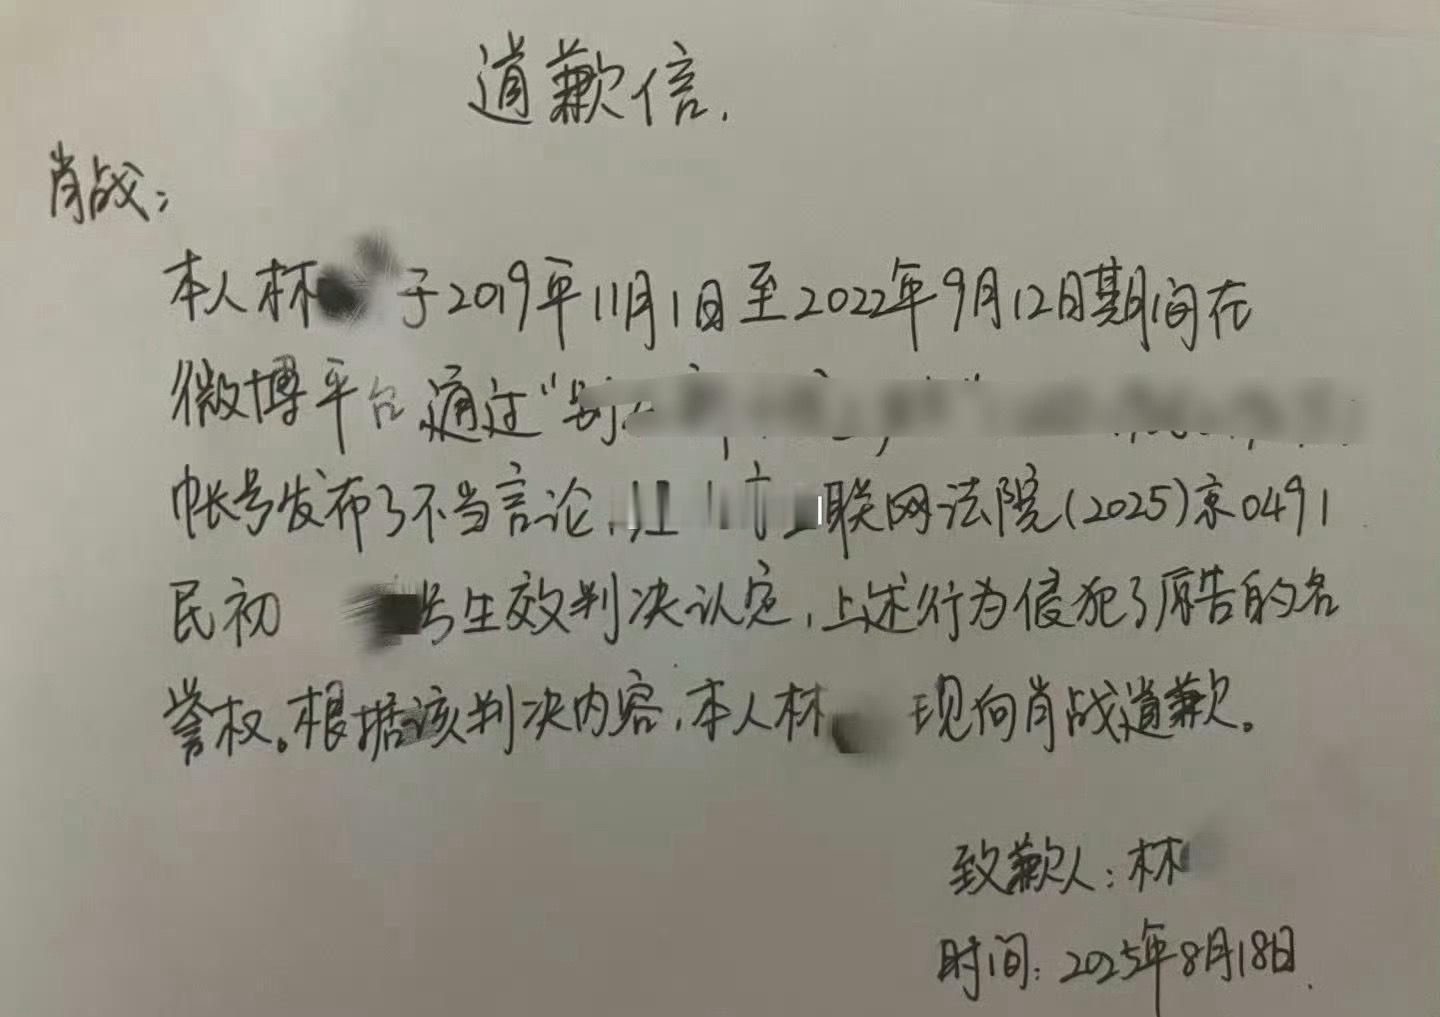 道歉信.
肖战:
本人林 于2019年11月1日至2022年9月12日期间在
微博平台,通过“别
帐号发布了不当言论, 联网法院(2025)京0491
民初 号生效判决认定,上述行为侵犯了原告的名
誉权。根据该判决内容,本人林 现向肖战道歉。
致歉人:林
时间:2025年8月18日.